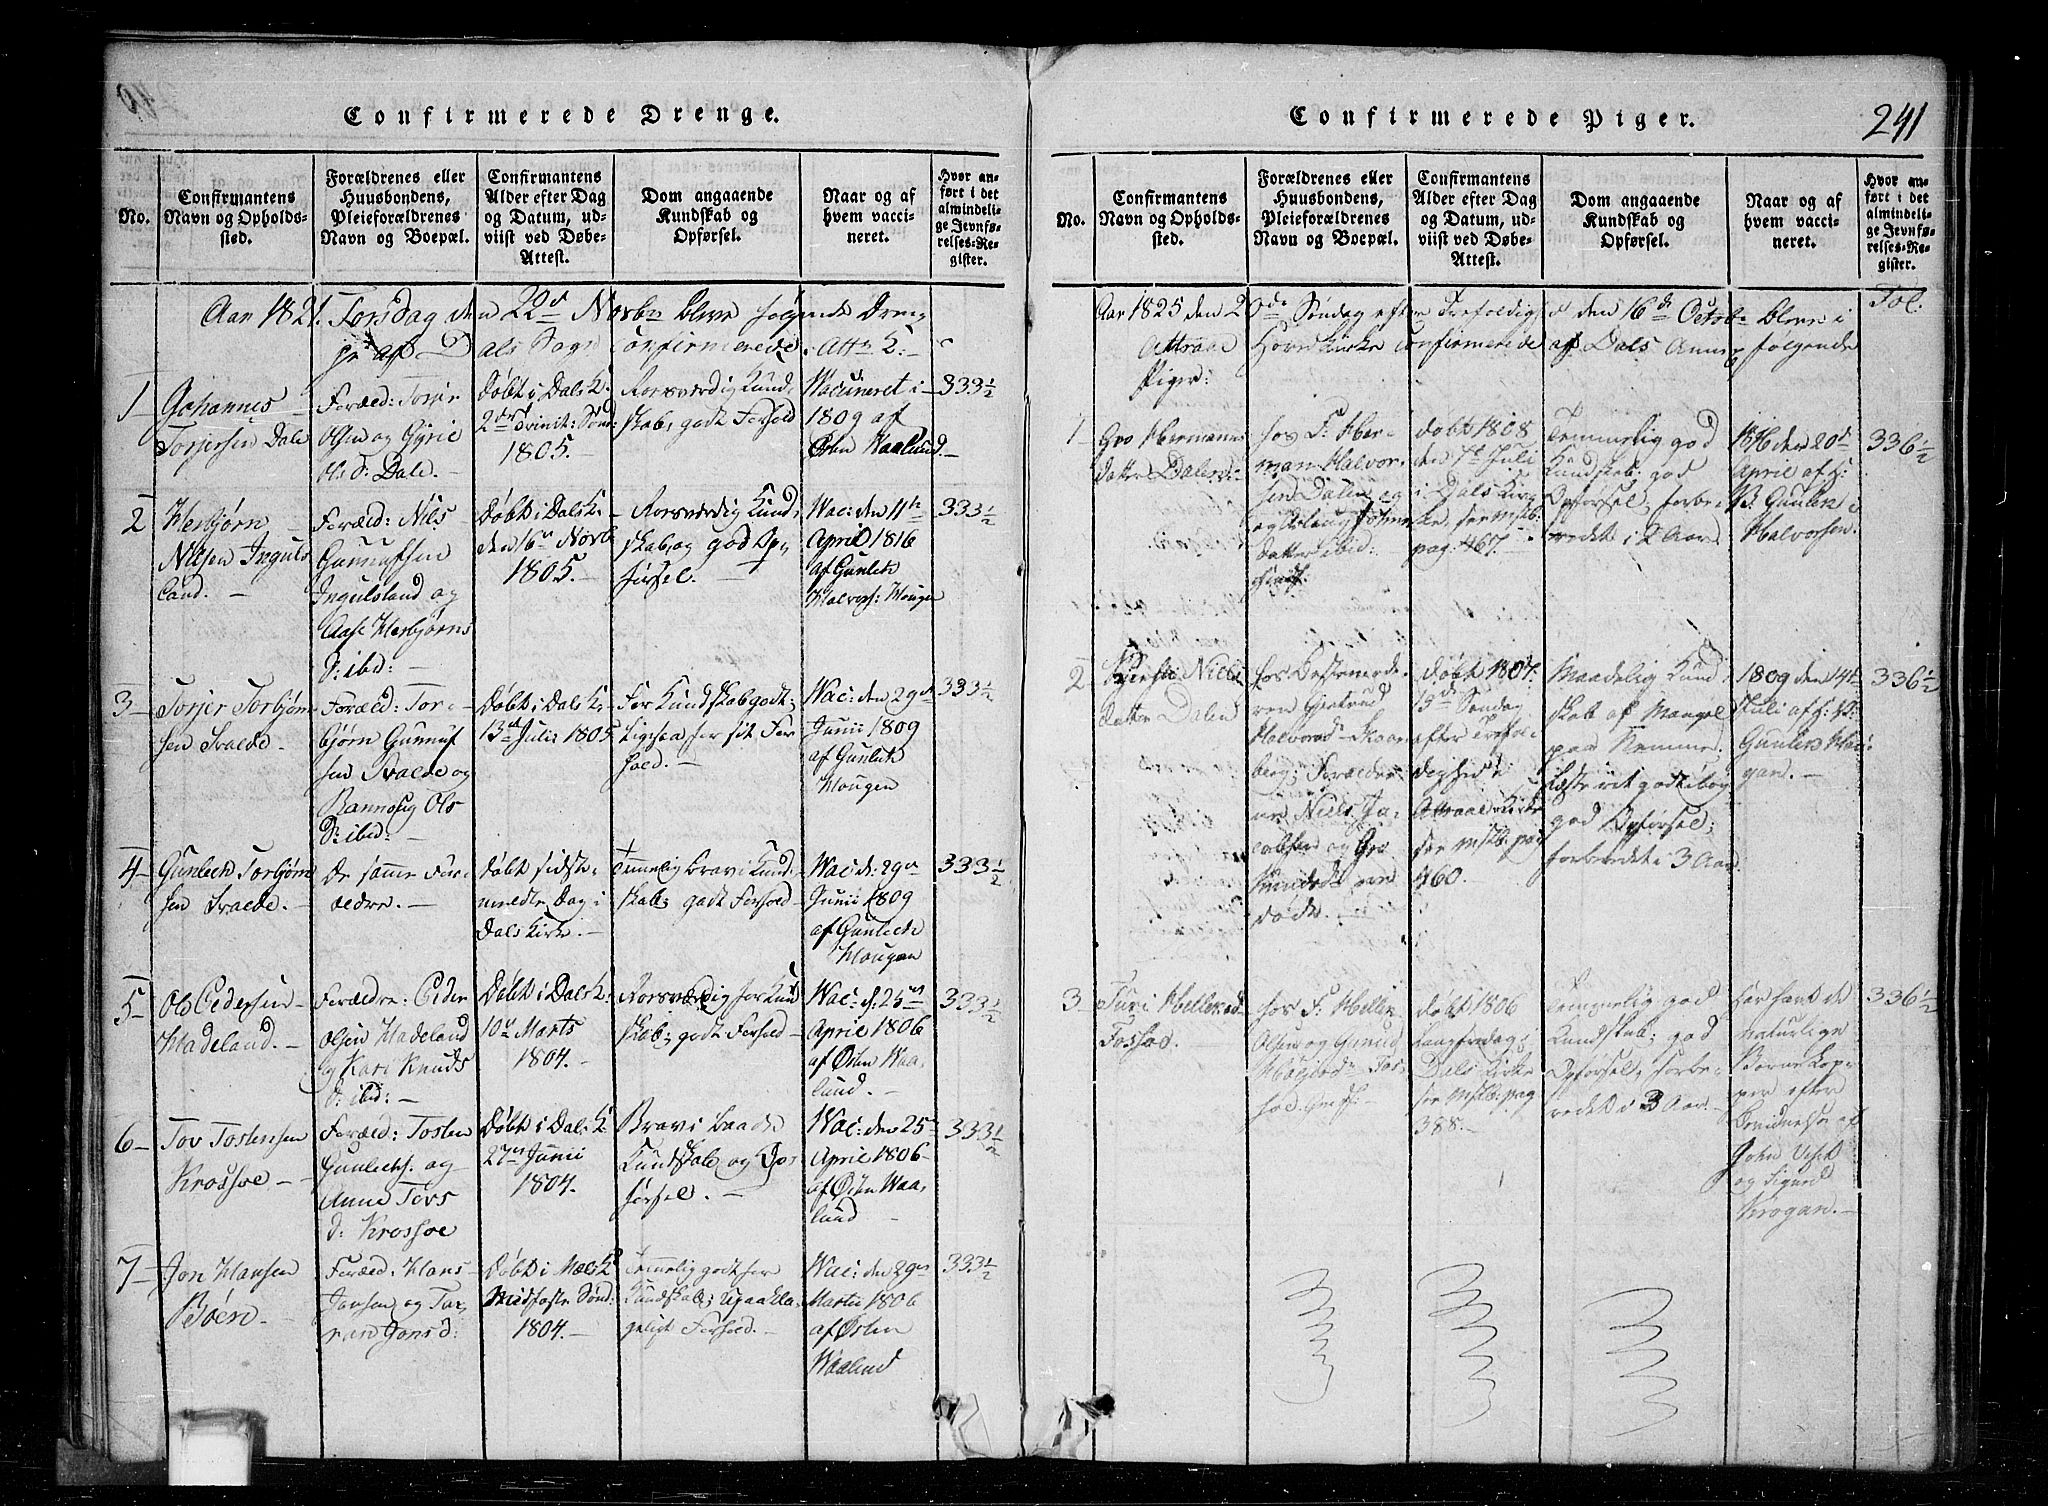 Confirmerede Drenge.
No.
Confirmantens
Navn og Opholds-
sted.
Forældrenes eller
Huusbondens,
Pleieforældrenes
Navn og Boepæl.
Confirmantens
Alder efter Dag
og Datum, ud-
viist ved Døbe-
Attest.
Dom angaaende
Kundskab og
Opførsel.
Naar og af
hvem vacci-
neret.
Hvor an-
ført i det
almindeli-
ge Jevnfø-
relses-Re-
gister.
Aar 1821. Torsdag den 22de Novbr bleve følgende Dren
ge af Dals Sogn confirmerede
1
Johannes
Torjersen Dale
Foræld: Torjer
Olsen og Gyrie
Ols d: Dale.
Døbt i Dals K.
2den Trinit: Sønd:
1805.
Rorsværdig Kund,
skab, godt Forhold
Vaccineret i
1809 af
Østen Waalund
333½
2
Herbjørn
Nilsen Inguls
land.
Foræld: Nils
Gunnufsen
Ingulsland og
Aase Herbjørns
D: ibid:
Døbt i Dals K.
den 16de Novb
1805.
Rorsværdig Kund
skab, og god Op,
førsel.
Vac: den 11te
April 1816
af Gunlek
Halvors: Hougen
333½
3
Torjer Torbjørn
sen Svalde
Foræld: Tor-
bjørn Gunnuf
sen Svalde og
Rannoug Ols
D: ibid:
Døbt i Dals K.
13de Juli 1805
For Kundskab godt;
ligesaa for sit For
hold.
Vac: den 29de
Junii 1809
af Gunlek
Hougen
333½
4
Gunleck Torbjørn
sen Svalde.
De samme For-
ældre.
Døbt sidst-
meldte Dag i
Dals Kirke.
Temmelig brav i Kund-
skab; godt Forhold
Vac: d: 29de
Junii 1809
af Gunleck
Hougan
333½
5
Ole Pedersen
Hadeland.
Forældre: Peder
Olsen Hadeland
og Kari Knuds
D: ibid:
Døbt i Dals K.
10de Marts
1804.
Rorsværdig for Kund
skab; godt Forhold
Vac: d. 25de
April 1806
af Østen Waa,
lund.
333½
6
Tov Tostensen
Krossoe
Foræld: Tosten
Gunlecks. og
Anne Tovs
d: Krossoe
Døbt i Dals K.
27de Junii
1804.
Brav i baade
Kundskab og Op,
førsel.
Vac: den 25de
April 1806
af Østen Waa,
lund
333½
7
Jon Hansen
Bøen
Foræld: Hans
Jonsen og Tor,
Jons d:
Døbt i Mæls K
Midfaste Sønd:
1804.
Temmelig godt for
Kundskab; upaakla-
geligt Forhold.
Vac: den 29de
Martii 1806
af Østen
Waalund
333½
Confirmerede Piger.
241
No.
Confirmantens
Navn og Opholds-
sted.
Forældrenes eller
Huusbondens,
Pleieforældrenes
Navn og Boepæl.
Confirmantens
Alder efter Dag
og Datum, ud-
viist ved Døbe-
Attest.
Dom angaaende
Kundskab og
Opførsel.
Naar og af
hvem vacci-
neret.
Hvor an-
ført i det
almindeli-
ge Jevnfø-
relses-Re-
gister.
Fol.
Aar 1825 den 20de Søndag efter Trefoldigh den 16de Octobr bleve i
Attraae Hoved kirke confirmerede af Dals Annex følgende
Piger:
1
Gro Hermanns
datter Dalen
hos F: Her-
man Halvor-
sen Dalen og
og Aslaug
datter ibid:
døbt 1808
den 7de Juli
i Dals Kir-
ke, see Mstb:
pag: 467.
Temmelig god
Kundskab; god
Opførsel, forbe-
redet i 2 Aar.
1816 den 20de
April af H:
B: Gunlek
Halvorsen.
336½
2
Kjersti Niels
datter Dalen
hos Bestemode-
ren Gjertrud
Halvorsd: Skaar
berg; Forældre-
ne Niels Ja-
cobsen og Gro
Knudsd: ere
døde.
døbt 1807.
13de Søndag
efter Trefol-
dighed i
Attraae Kirke
see Mstb: pag
460.
Maadelig Kund
skab af Mangel
paa Nemme.
Læste ret godt i Bog,
god Opførsel;
forberedet i 3 Aar
1809 den 14de
Juli af H: P:
Gunlek Hau-
gan.
336½
3
Turi Hellerod
Fosso.
hos F: Hellek
Olsen og Gunild
døbt 1806
Langfredag i
Dals Kirke
see Mstb: pag
388.
Temmelig god
Kundskab; god
Opførsel, forbe-
redet i 3 Aar.
har havt de
naturlige
Børne Kop-
per efter
Bevidnelse af
John
og Sigurd
Krogan.
336½